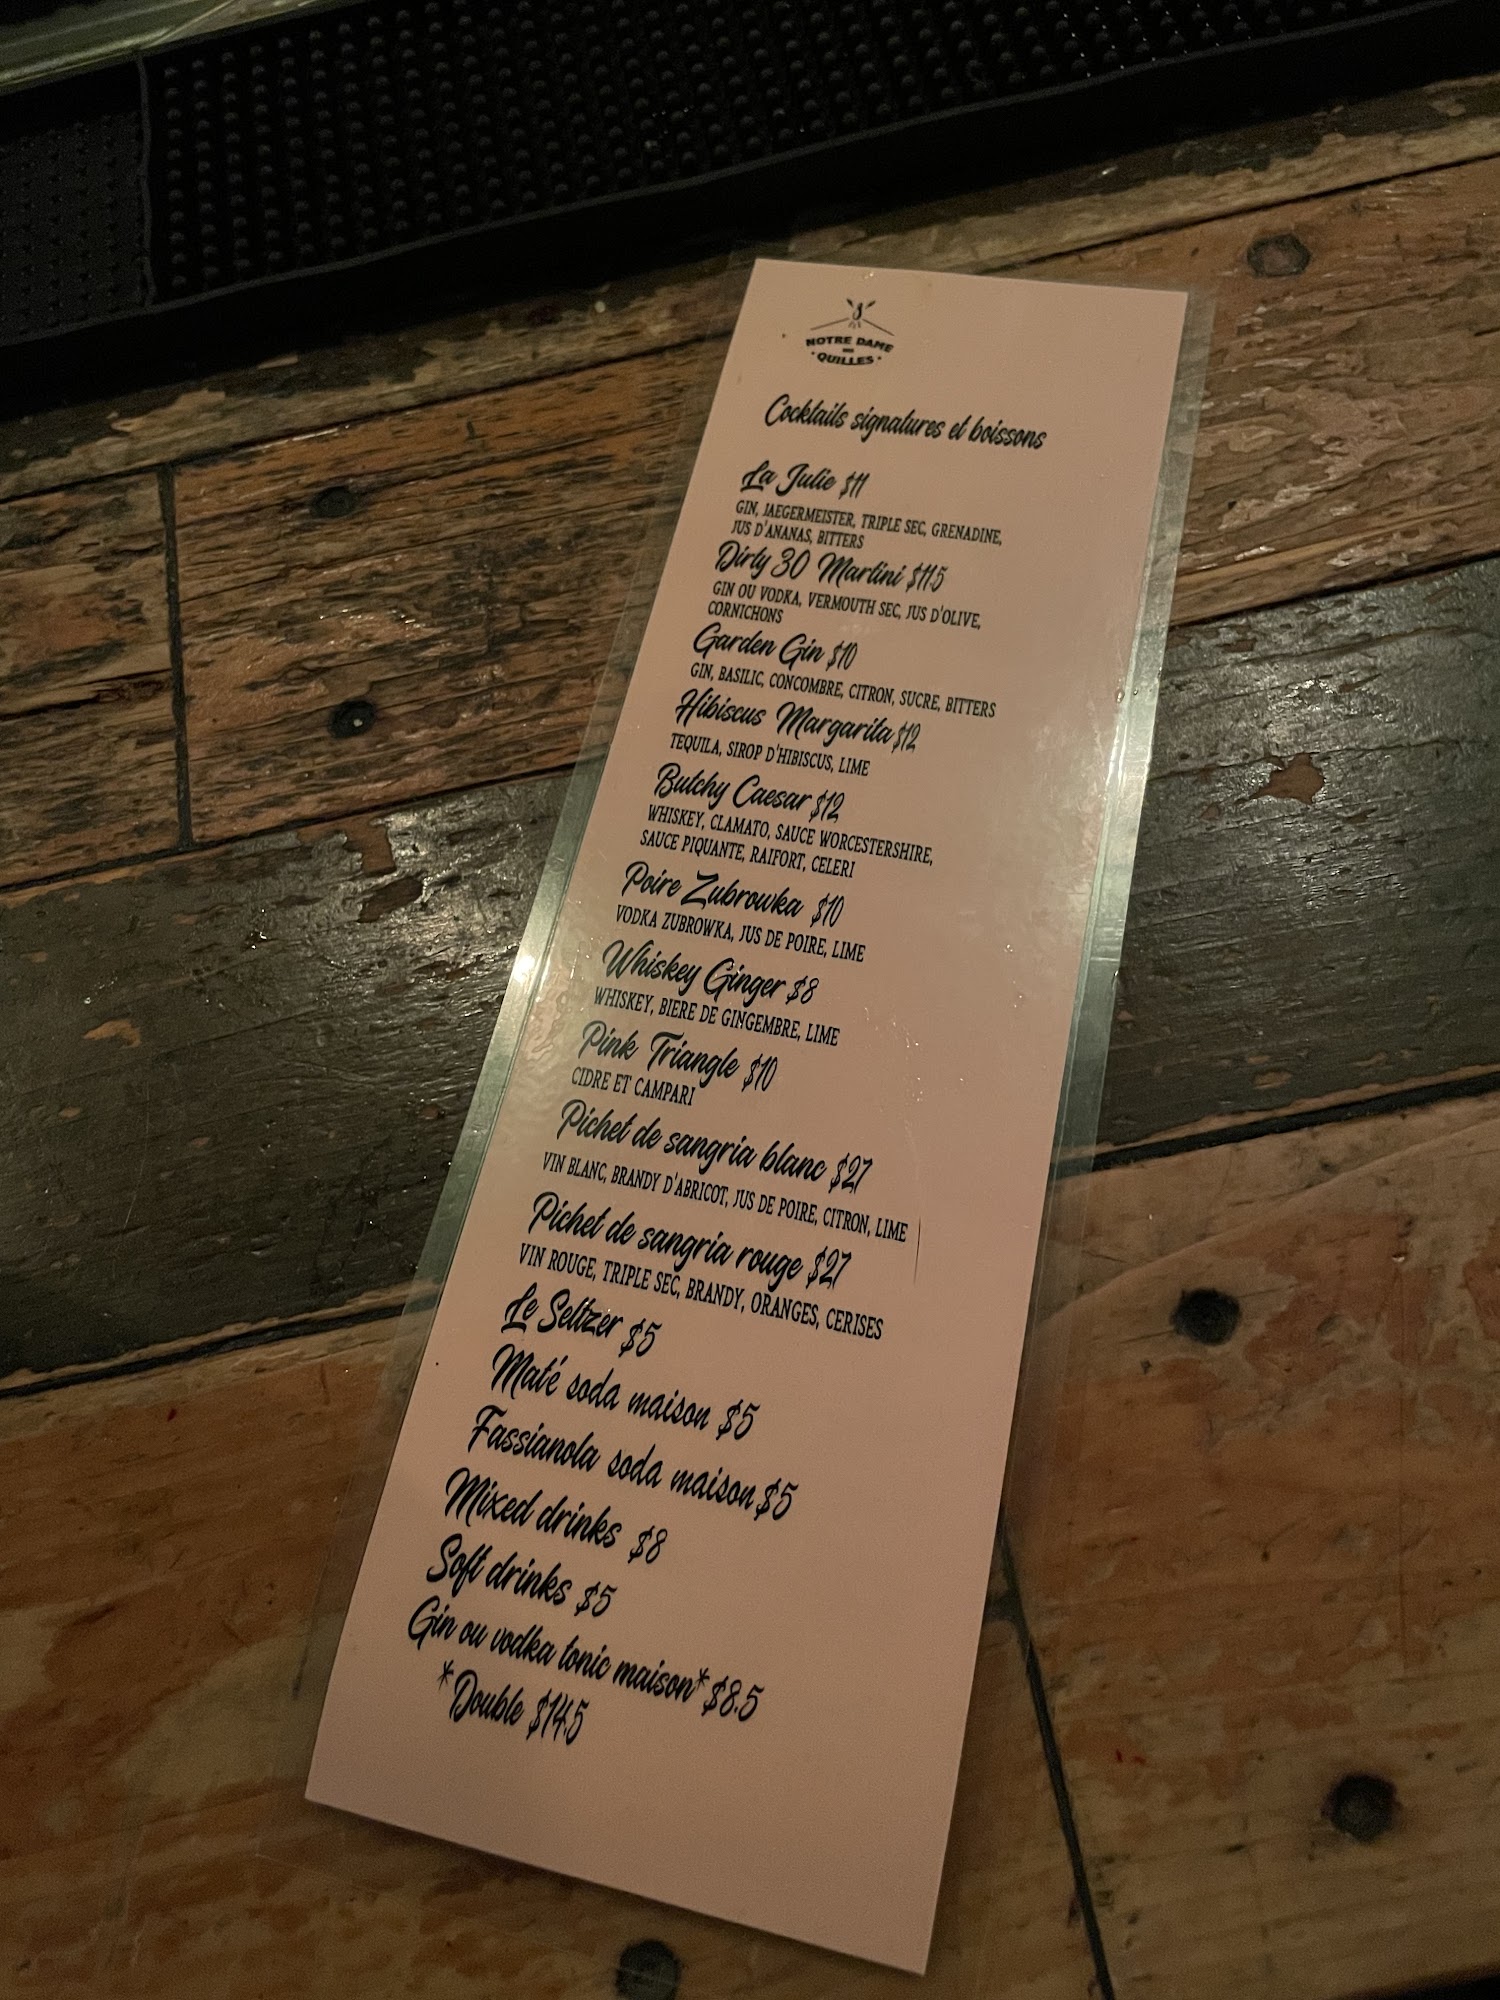 NOTRE DAME
DES
QUILLES
Cocktails signatures et boissons
La Julie $11
GIN, JAEGERMEISTER, TRIPLE SEC, GRENADINE,
JUS D'ANANAS, BITTERS
Dirty 30 Martini $11.5
GIN OU VODKA, VERMOUTH SEC, JUS D'OLIVE,
CORNICHONS
Garden Gin $10
GIN, BASILIC, CONCOMBRE, CITRON, SUCRE, BITTERS
Hibiscus Margarita $12
TEQUILA, SIROP D'HIBISCUS, LIME
Butchy Caesar $12
WHISKEY, CLAMATO, SAUCE WORCESTERSHIRE,
SAUCE PIQUANTE, RAIFORT, CELERI
Poire Zubrowka $10
VODKA ZUBROWKA, JUS DE POIRE, LIME
Whiskey Ginger $8
WHISKEY, BIERE DE GINGEMBRE, LIME
Pink Triangle $10
CIDRE ET CAMPARI
Pichet de sangria blanc $27
VIN BLANC, BRANDY D'ABRICOT, JUS DE POIRE, CITRON, LIME
Pichet de sangria rouge $27
VIN ROUGE, TRIPLE SEC, BRANDY, ORANGES, CERISES
Le Seltzer $5
Maté soda maison $5
Fassianola soda maison $5
Mixed drinks $8
Soft drinks $5
Gin ou vodka tonic maison* $8.5
*Double $14.5